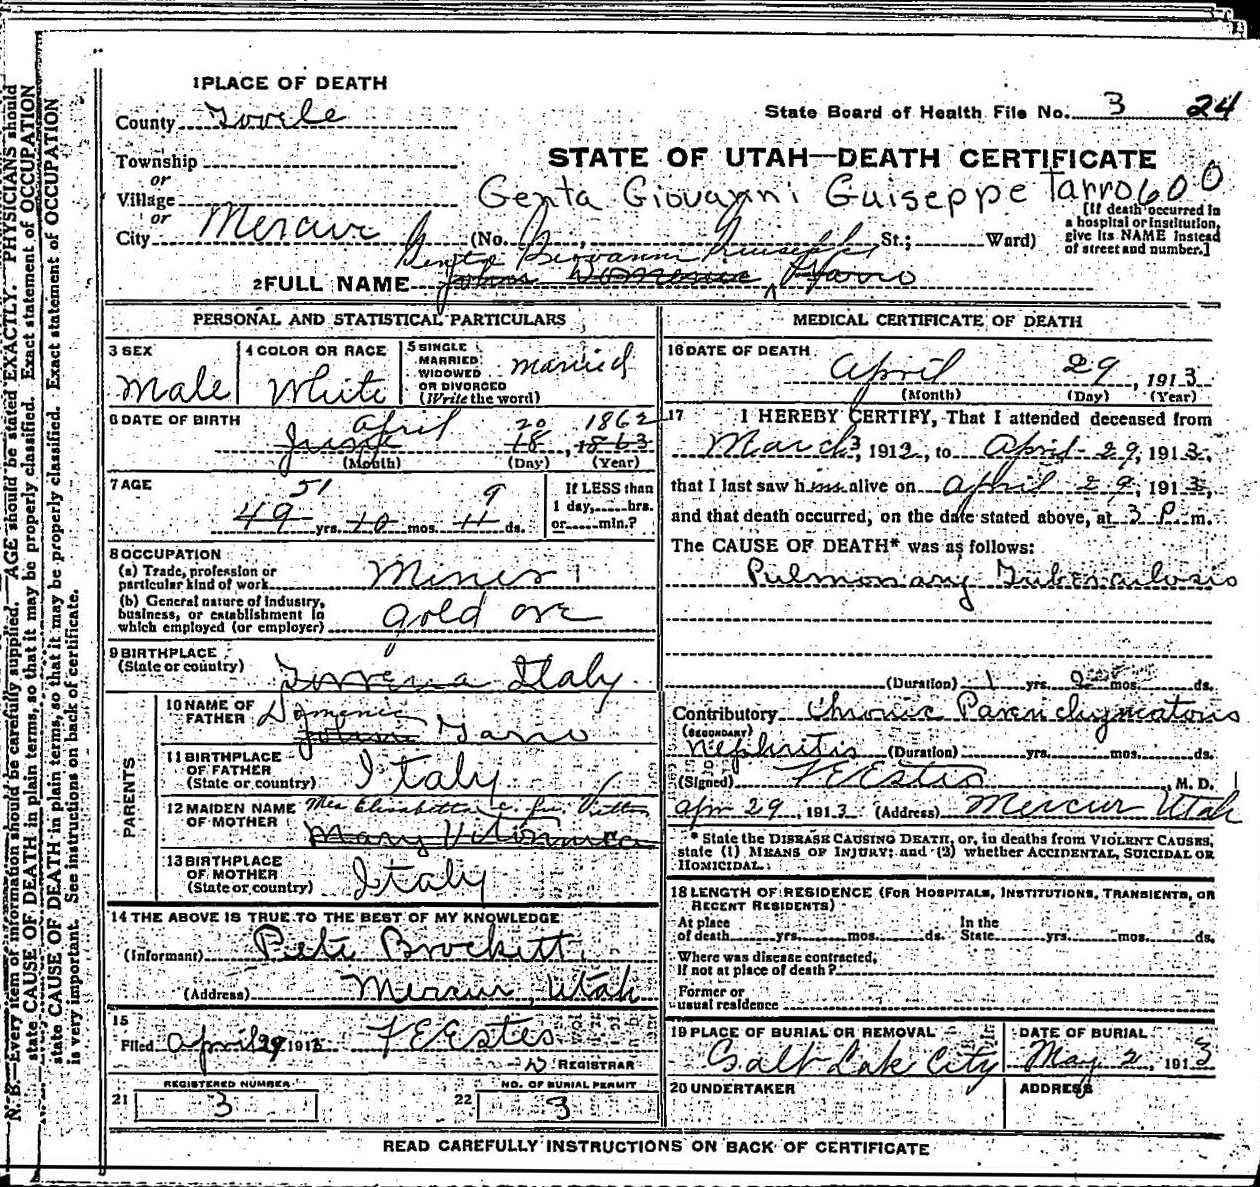 1 PLACE OF DEATH
County Tooele
State Board of Health File No. 3 24
Township
or
Village
or
City Mercur
STATE OF UTAH—DEATH CERTIFICATE
Genta Giovanni Guiseppe Tarro 600
(No. St.; Ward)
[If death occurred in
a hospital or institution,
give its NAME instead
of street and number.]
Genta Giovanni Guiseppe
2 FULL NAME John Domenic Tarro
PERSONAL AND STATISTICAL PARTICULARS
3 SEX
Male
4 COLOR OR RACE
White
5 SINGLE
MARRIED
WIDOWED
OR DIVORCED
(Write the word)
Married
6 DATE OF BIRTH
April 20 1862
June 18, 1863
(Month) (Day) (Year)
7 AGE
51 9
49 yrs. 10 mos. 11 ds.
If LESS than
1 day, hrs.
or min.?
8 OCCUPATION
(a) Trade, profession or
particular kind of work Miner
(b) General nature of industry,
business, or establishment in
which employed (or employer) gold ore
9 BIRTHPLACE
(State or country) Italy
PARENTS
10 NAME OF
FATHER Domenic
Tarro
11 BIRTHPLACE
OF FATHER
(State or country) Italy
12 MAIDEN NAME
OF MOTHER
Mary
13 BIRTHPLACE
OF MOTHER
(State or country) Italy
14 THE ABOVE IS TRUE TO THE BEST OF MY KNOWLEDGE
(Informant) Pete Brockitt
(Address) Mercur, Utah
15
Filed April 29 1913 F E Estes
REGISTRAR
21 REGISTERED NUMBER
3
22 NO. OF BURIAL PERMIT
3
MEDICAL CERTIFICATE OF DEATH
16 DATE OF DEATH
April 29, 1913
(Month) (Day) (Year)
17 I HEREBY CERTIFY, That I attended deceased from
March 3, 1912, to April 29, 1913,
that I last saw him alive on April 29, 1913,
and that death occurred, on the date stated above, at 3 P m.
The CAUSE OF DEATH* was as follows:
Pulmonary Tuberculosis
(Duration) 1 yrs. 2 mos. ds.
Contributory Chronic Parenchymatous
(SECONDARY)
Nephritis (Duration) yrs. mos. ds.
(Signed) F E Estes M. D.
Apr 29, 1913 (Address) Mercur Utah
* State the DISEASE CAUSING DEATH, or, in deaths from VIOLENT CAUSES,
state (1) MEANS OF INJURY; and (2) whether ACCIDENTAL, SUICIDAL OR
HOMICIDAL.
18 LENGTH OF RESIDENCE (FOR HOSPITALS, INSTITUTIONS, TRANSIENTS, OR
RECENT RESIDENTS)
At place
of death yrs. mos. ds.
In the
State yrs. mos. ds.
Where was disease contracted,
if not at place of death?
Former or
usual residence
19 PLACE OF BURIAL OR REMOVAL
Salt Lake City
DATE OF BURIAL
May 2, 1913
20 UNDERTAKER
ADDRESS
READ CAREFULLY INSTRUCTIONS ON BACK OF CERTIFICATE
N. B.—Every item of information should be carefully supplied. AGE should be stated EXACTLY. PHYSICIANS should
state CAUSE OF DEATH in plain terms, so that it may be properly classified. Exact statement of OCCUPATION
state CAUSE OF DEATH in plain terms, so that it may be properly classified. Exact statement of OCCUPATION
is very important. See instructions on back of certificate.